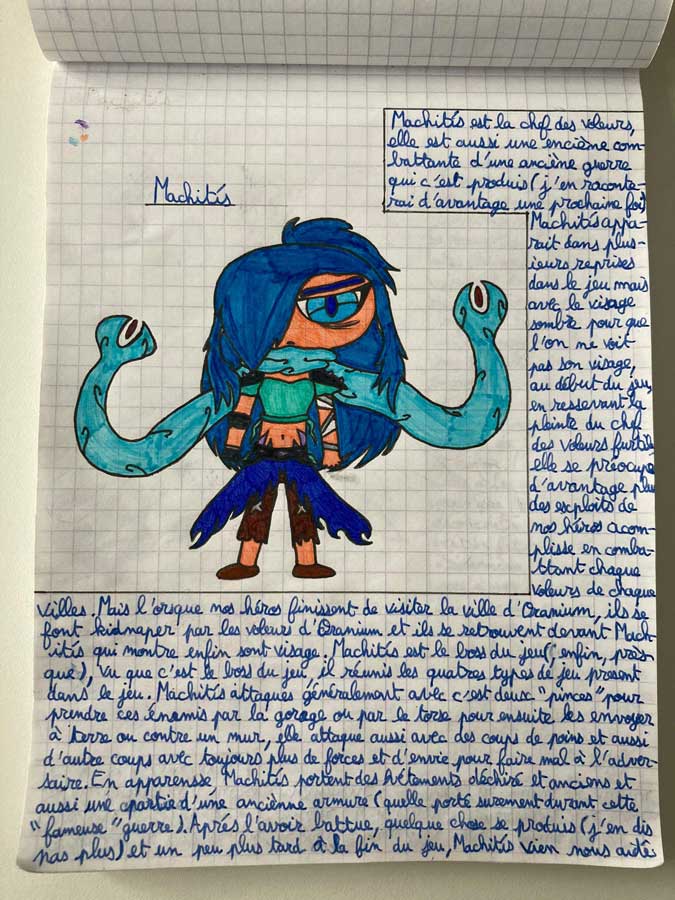 Machités
Machités est la chef des voleurs,
elle est aussi une encième com-
battante d'une ancième guerre
qui c'est produis (j'en raconte-
rai d'avantage une prochaine foi)
Machités appa-
rait dans plus-
ieurs reprises
dans le jeu mais
avec le visage
sombre pour que
l'on ne voit
pas son visage,
au début du jeu,
en ressevant la
plainte du chef
des voleurs furtils
elle se préocupe
d'avantage plus
des exploits de
nos héros acom-
plisse en comba-
ttant chaque
voleurs de chaque
villes. Mais l'orsque nos héros finissent de visiter la ville d'Oranium, ils se
font kidnaper par les voleurs d'Oranium et ils se retrouvent devant Mach-
ités qui montre enfin sont visage. Machités est le boss du jeu (enfin, pres-
que), vu que c'est le boss du jeu, il réunis les quatres types de jeu present
dans le jeu. Machités attaques généralement avec c'est deux "pinces" pour
prendre ces énamis par la gorage ou par le torse pour ensuite les envoyer
à terre ou contre un mur, elle attaque aussi avec des coups de poins et aussi
d'autre coups avec toujours plus de forces et d'envie pour faire mal à l'adver-
saire. En apparensse, Machités portent des vétements déchiré et anciens et
aussi une partie d'une ancienne armure (quelle porté surement durant cette
"fameuse" guerre). Aprés l'avoir battue, quelque chose se produis (j'en dis
pas plus) et un peu plus tard à la fin du jeu, Machités vien nous aidé